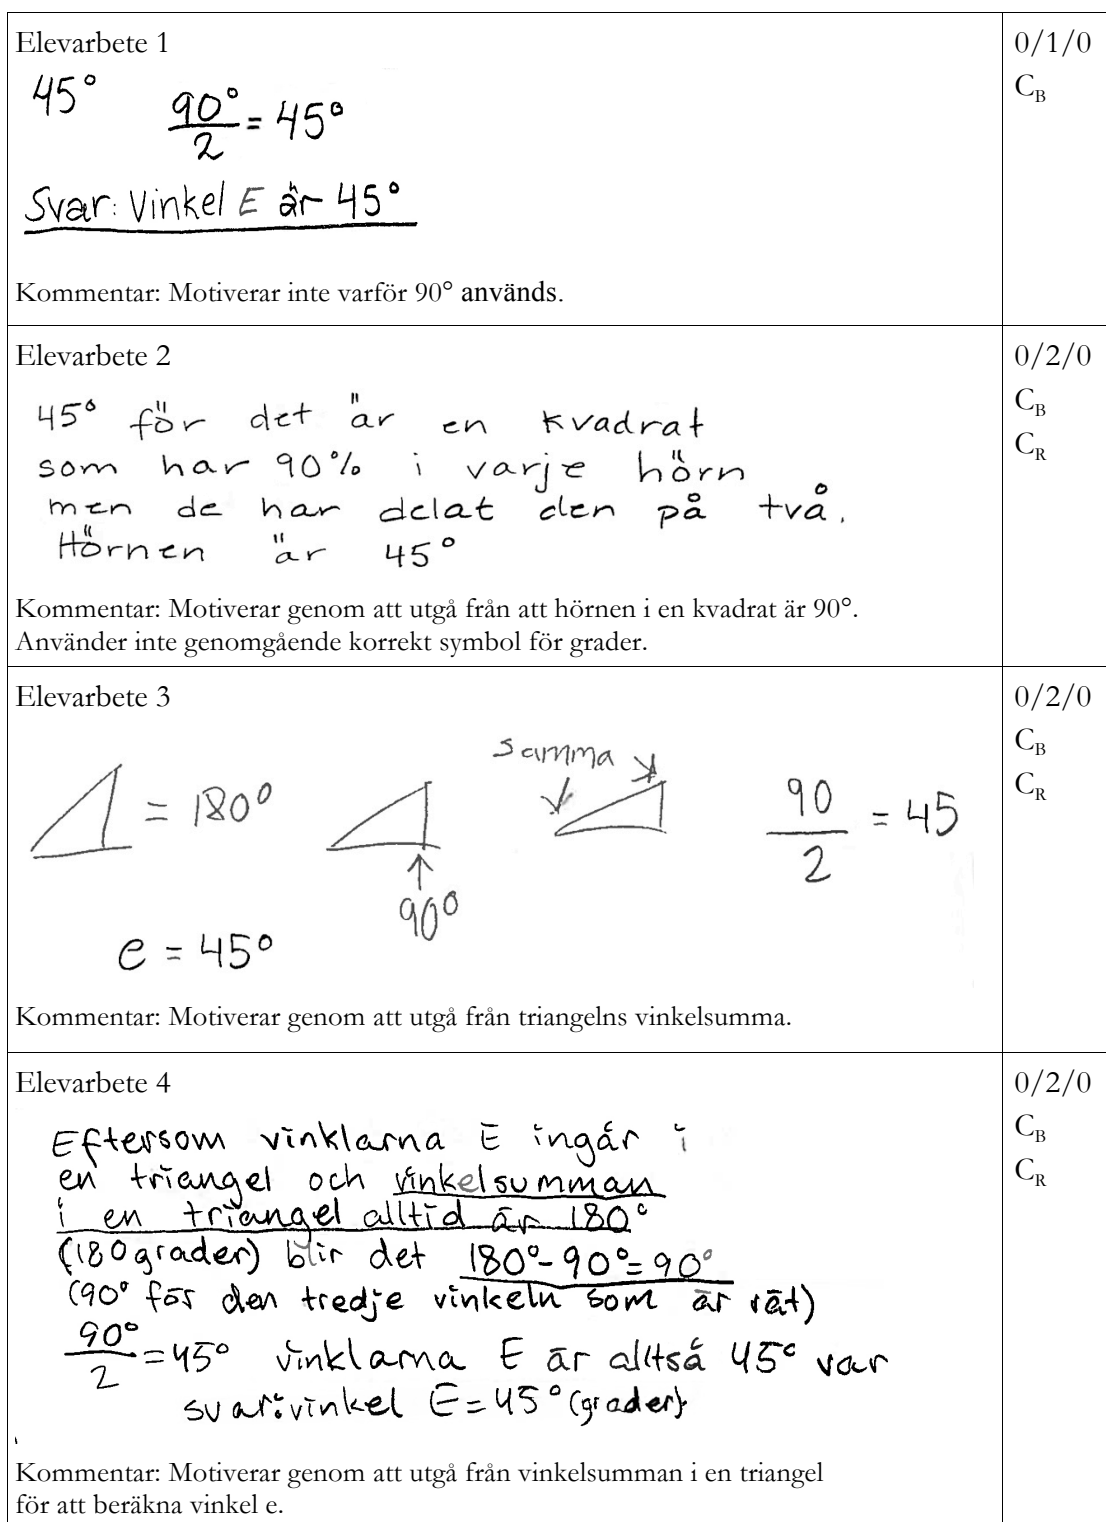 Elevarbete 1
0/1/0
C_B
45°
90°/2 = 45°
Svar: Vinkel E är 45°
Kommentar: Motiverar inte varför 90° används.
Elevarbete 2
0/2/0
C_B
C_R
45° för det är en kvadrat
som har 90% i varje hörn
men de har delat den på två.
Hörnen är 45°
Kommentar: Motiverar genom att utgå från att hörnen i en kvadrat är 90°.
Använder inte genomgående korrekt symbol för grader.
Elevarbete 3
0/2/0
C_B
C_R
= 180°
90°
samma
90/2 = 45
e = 45°
Kommentar: Motiverar genom att utgå från triangelns vinkelsumma.
Elevarbete 4
0/2/0
C_B
C_R
Eftersom vinklarna E ingår i
en triangel och vinkelsumman
i en triangel alltid är 180°
(180 grader) blir det 180°-90°=90°
(90° för den tredje vinkeln som är rät)
90°/2 = 45° vinklarna E är alltså 45° var
svar: vinkel E = 45° (grader)
Kommentar: Motiverar genom att utgå från vinkelsumman i en triangel
för att beräkna vinkel e.